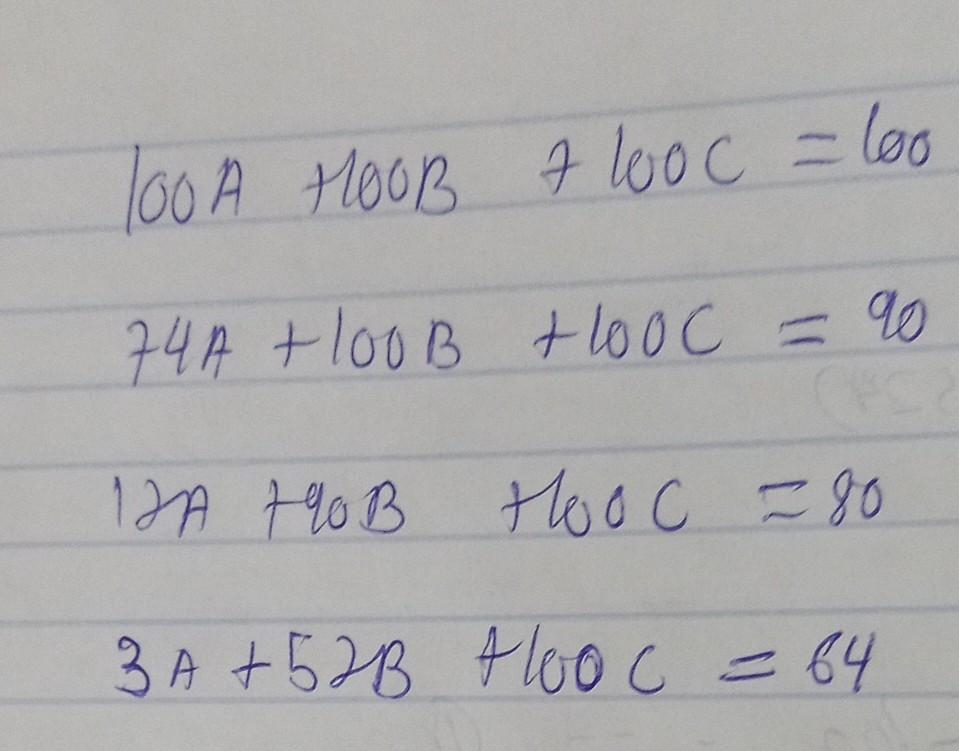 100A +100B + 100C = 100
74A +100B +100C = 90
12A +90B +100C = 80
3A +52B +100C = 64